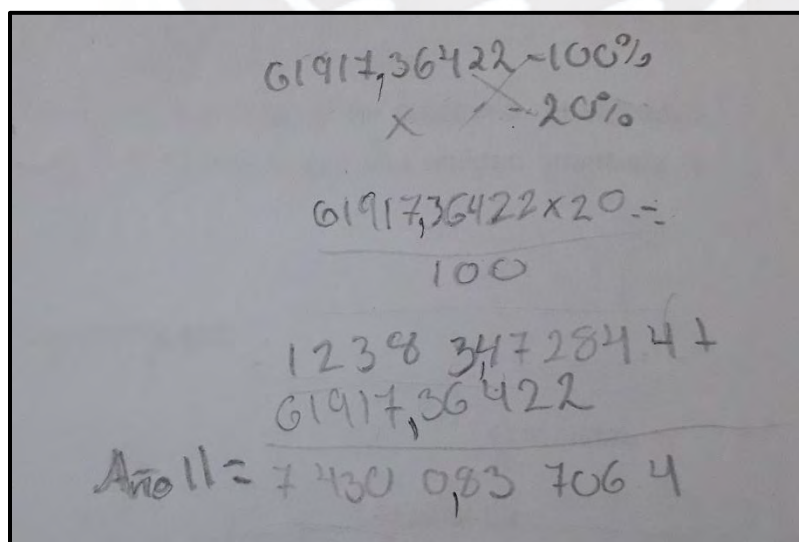 61917,36422 - 100%
x - 20%
61917,36422 x 20 =
100
12383,472844 +
61917,36422
Año 11 = 74300,837064